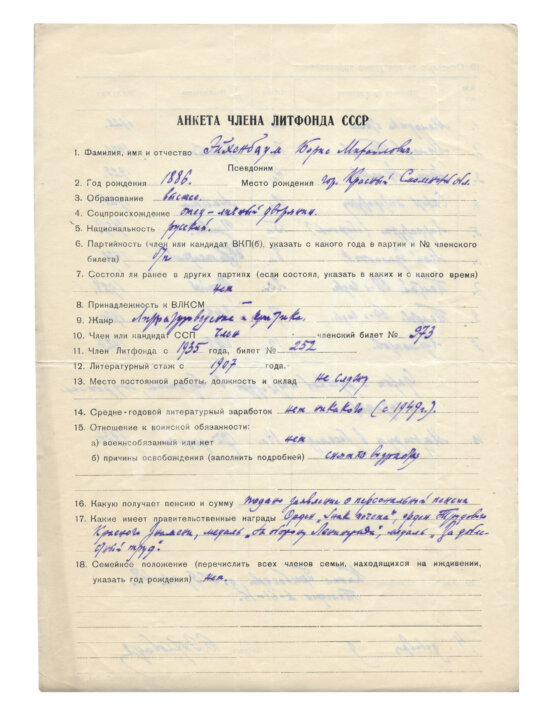 АНКЕТА ЧЛЕНА ЛИТФОНДА СССР
1. Фамилия, имя и отчество Эйхенбаум Борис Михайлович
Псевдоним
2. Год рождения 1886. Место рождения гор. Красный Смоленск. обл.
3. Образование высшее
4. Соцпроисхождение отец – личный дворянин.
5. Национальность русский.
6. Партийность (член или кандидат ВКП(б), указать с какого года в партии и № членского
билета) б/п
7. Состоял ли ранее в других партиях (если состоял, указать в каких и с какого время)
нет
8. Принадлежность к ВЛКСМ
9. Жанр Литературоведение и критика.
10. Член или кандидат ССП член членский билет № 973
11. Член Литфонда с 1935 года, билет № 252
12. Литературный стаж с 1907 года.
13. Место постоянной работы, должность и оклад не служу
14. Средне-годовой литературный заработок нет никакого (с 1949 г.).
15. Отношение к воинской обязанности:
а) военнообязанный или нет нет
б) причины освобождения (заполнить подробней) снят по возрасту
16. Какую получает пенсию и сумму подано заявление о персональной пенсии
17. Какие имеет правительственные награды Орден „Знак почета", орден Трудового
Красного Знамени, медаль „За оборону Ленинграда", медаль „За доблестный труд".
18. Семейное положение (перечислить всех членов семьи, находящихся на иждивении,
указать год рождения) нет.